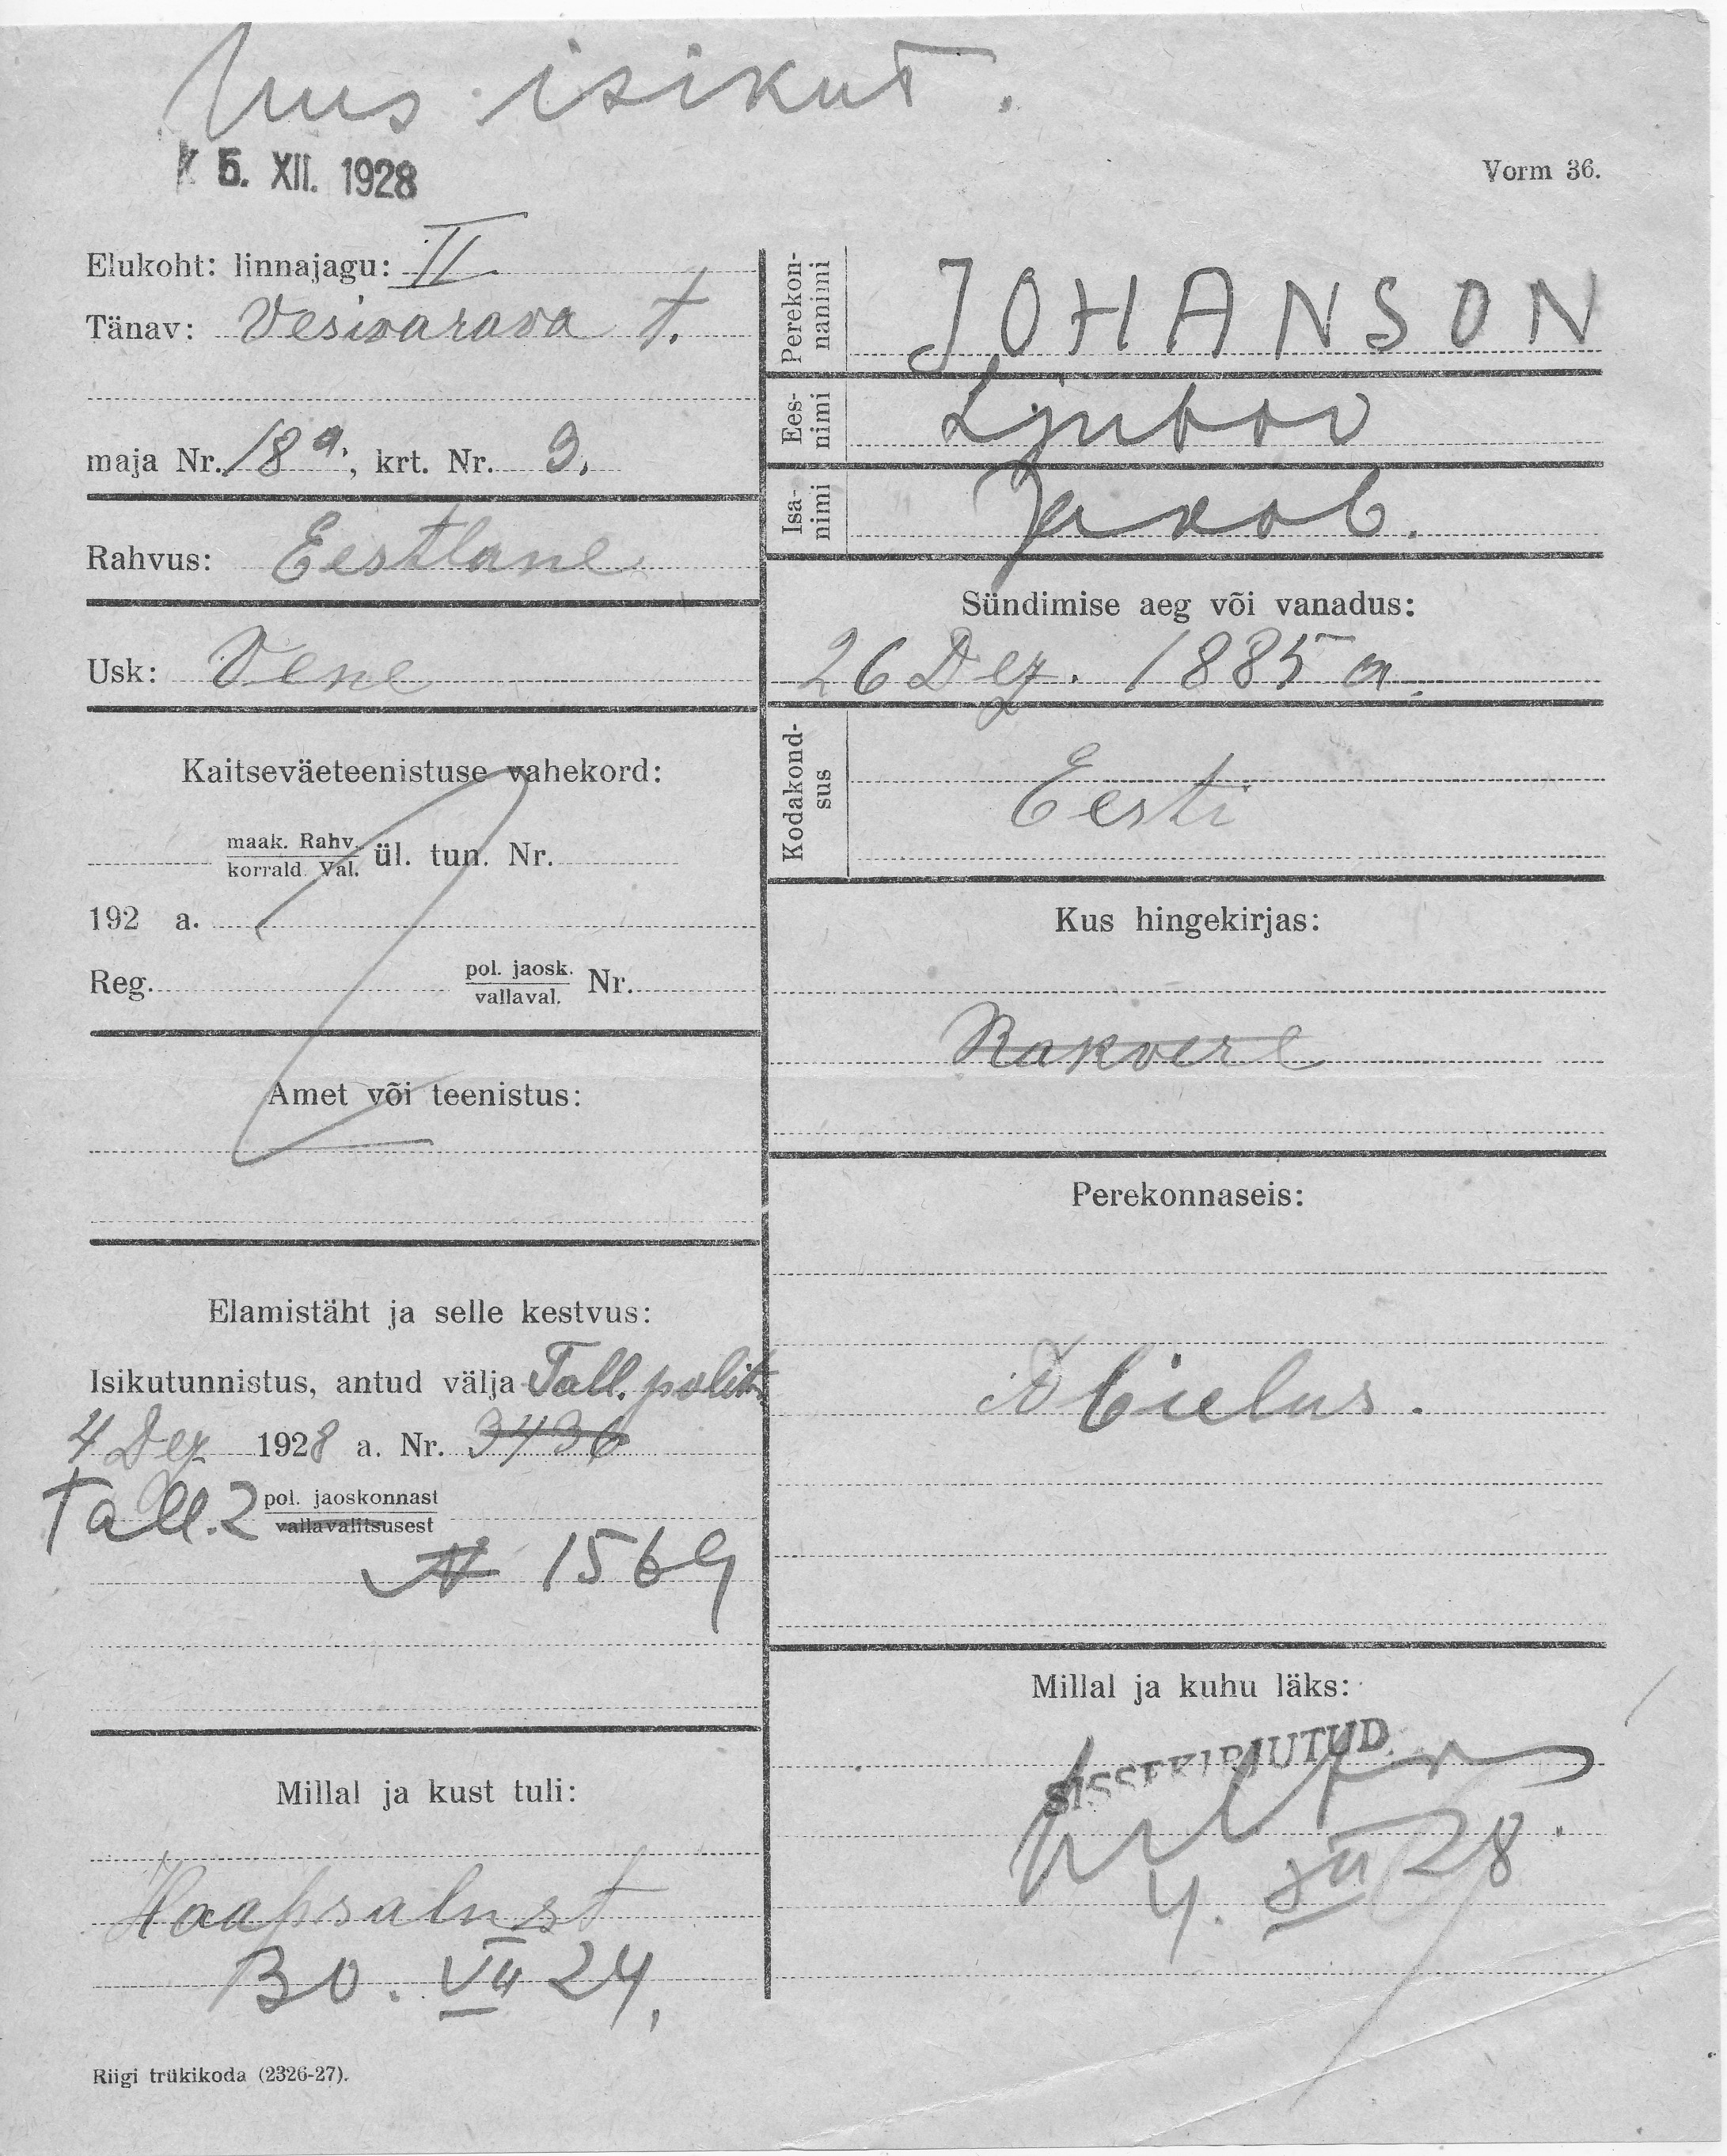 Uus isikut.
K 5. XII. 1928
Vorm 36.
Elukoht: linnajagu: II
Tänav: Vesivarava t.
maja Nr. 18a., krt. Nr. 9.
Rahvus: Eestlane
Usk: Vene
Kaitseväeteenistuse vahekord:
maak. Rahv. ül. tun. Nr.
korrald. Val.
192 a.
Reg. pol. jaosk. Nr.
vallaval.
Amet või teenistus:
Elamistäht ja selle kestvus:
Isikutunnistus, antud välja Tall. polit.
4 Dez 1928 a. Nr. 3436
Tall. 2 pol. jaoskonnast
vallavalitsusest
№ 1569
Millal ja kust tuli:
Haapsalust
30. VII 24.
Riigi trükikoda (2326-27).
Perekon-
nanimi JOHANSON
Ees-
nimi Ljubov
Isa-
nimi Jakob.
Sündimise aeg või vanadus:
26 Dez. 1885 a.
Kodakond-
sus Eesti
Kus hingekirjas:
Rakvere
Perekonnaseis:
Abielus.
Millal ja kuhu läks:
SISSEKIRJUTUD.
4. XII 28.